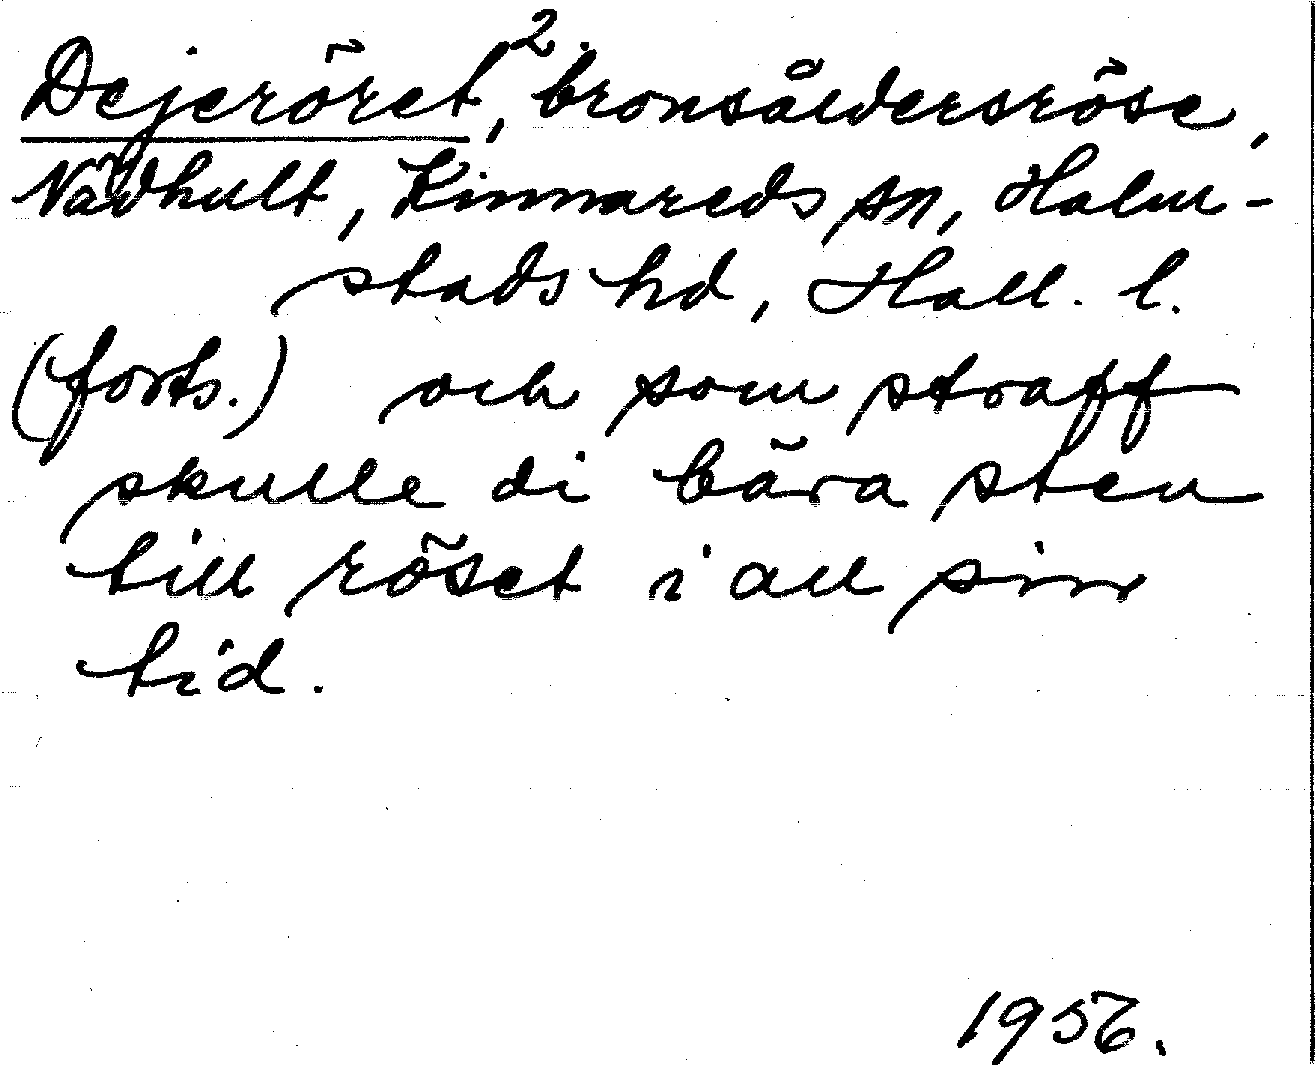 2.
Dejeröret, bronsåldersröse,
Nädhult, Kinnareds sn, Halm-
stads hd, Hall. l.
(forts.) och som straff
skulle di bära sten
till röset i all sin
tid.
1956.